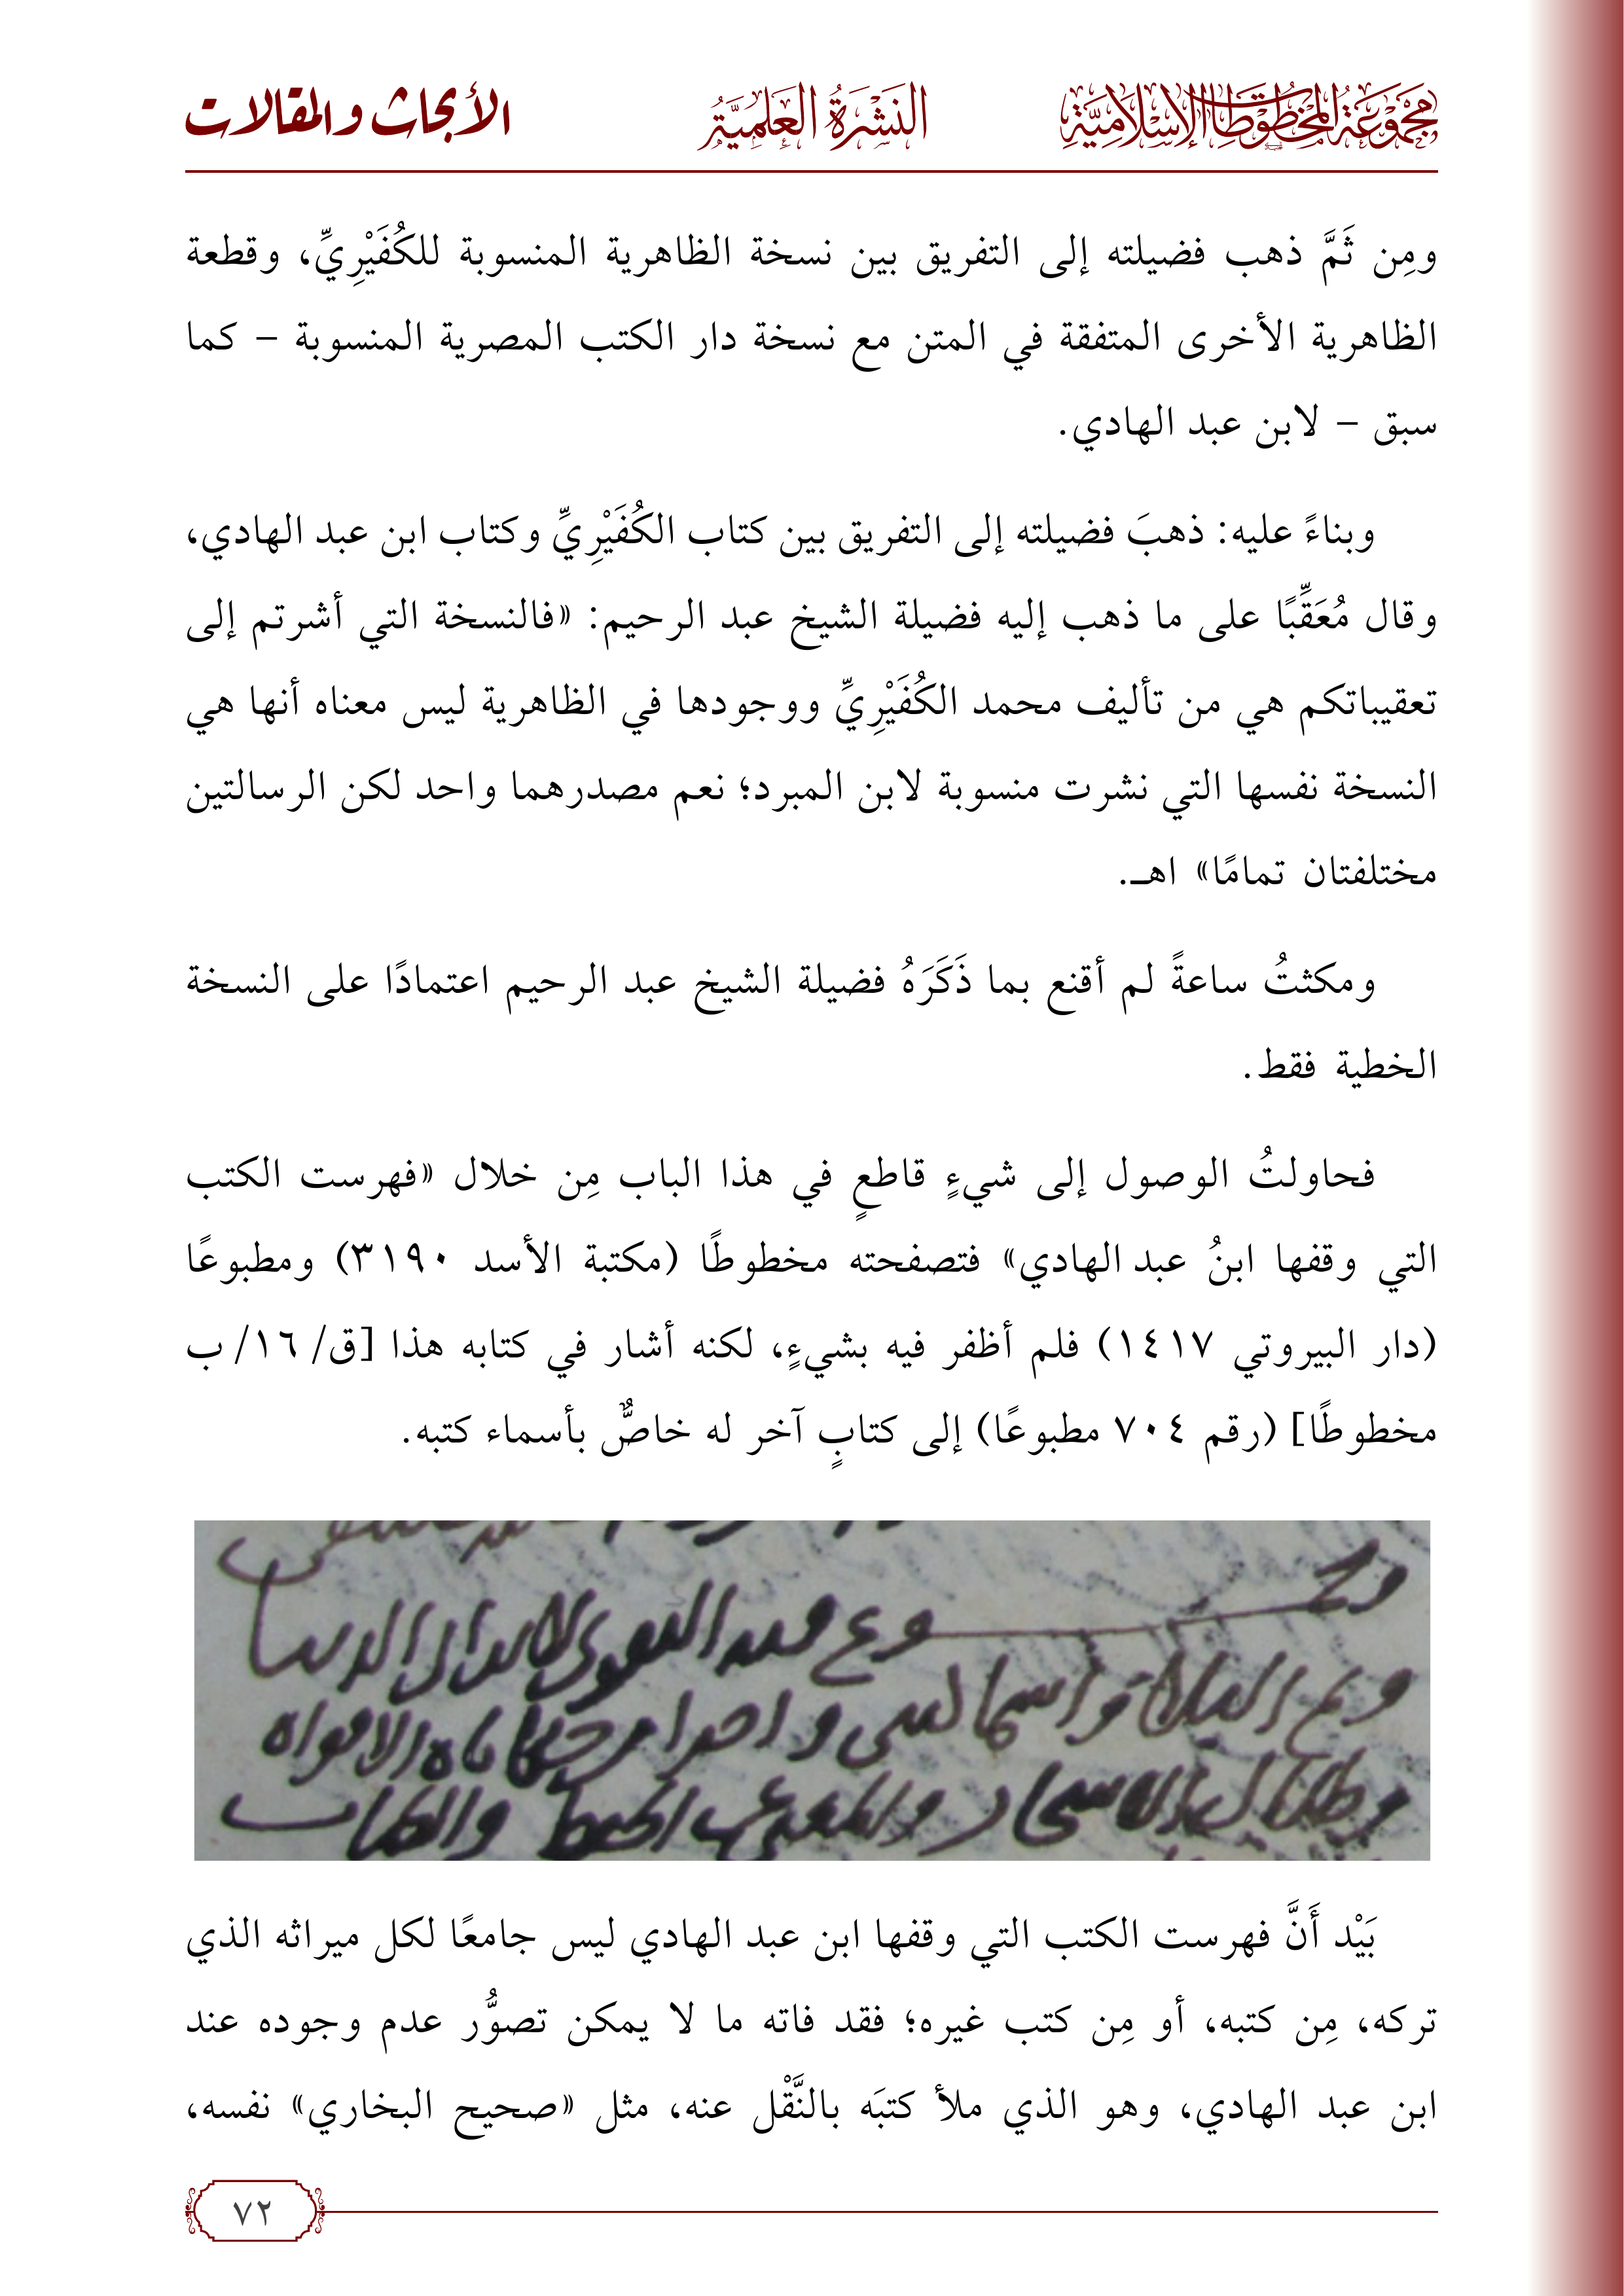 مَجْمُوعَةُ المَخْطُوطَاتِ الإِسْلَامِيَّةِ
النَّشْرَةُ العِلْمِيَّةُ
الأبحاث والمقالات
ومِن ثَمَّ ذهب فضيلته إلى التفريق بين نسخة الظاهرية المنسوبة للكُفَيْرِيِّ، وقطعة
الظاهرية الأخرى المتفقة في المتن مع نسخة دار الكتب المصرية المنسوبة – كما
سبق – لابن عبد الهادي.
وبناءً عليه: ذهبَ فضيلته إلى التفريق بين كتاب الكُفَيْرِيِّ وكتاب ابن عبد الهادي،
وقال مُعَقِّبًا على ما ذهب إليه فضيلة الشيخ عبد الرحيم: «فالنسخة التي أشرتم إلى
تعقيباتكم هي من تأليف محمد الكُفَيْرِيِّ ووجودها في الظاهرية ليس معناه أنها هي
النسخة نفسها التي نشرت منسوبة لابن المبرد؛ نعم مصدرهما واحد لكن الرسالتين
مختلفتان تمامًا» اهـ.
ومكثتُ ساعةً لم أقنع بما ذَكَرَهُ فضيلة الشيخ عبد الرحيم اعتمادًا على النسخة
الخطية فقط.
فحاولتُ الوصول إلى شيءٍ قاطعٍ في هذا الباب مِن خلال «فهرست الكتب
التي وقفها ابنُ عبد الهادي» فتصفحته مخطوطًا (مكتبة الأسد ٣١٩٠) ومطبوعًا
(دار البيروتي ١٤١٧) فلم أظفر فيه بشيءٍ، لكنه أشار في كتابه هذا [ق/ ١٦/ ب
مخطوطًا] (رقم ٧٠٤ مطبوعًا) إلى كتابٍ آخر له خاصٌّ بأسماء كتبه.
بَيْد أَنَّ فهرست الكتب التي وقفها ابن عبد الهادي ليس جامعًا لكل ميراثه الذي
تركه، مِن كتبه، أو مِن كتب غيره؛ فقد فاته ما لا يمكن تصوُّر عدم وجوده عند
ابن عبد الهادي، وهو الذي ملأ كتبَه بالنَّقْل عنه، مثل «صحيح البخاري» نفسه،
٧٢